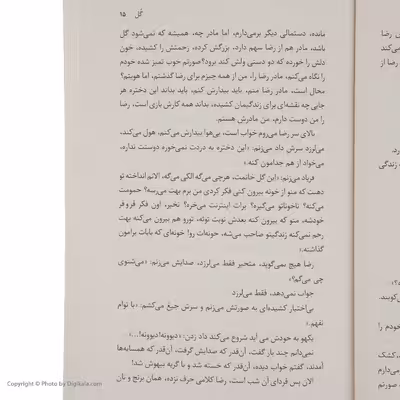 گل ۹۵
مانده، دستمالی دیگر برمی‌دارم، اما مادر چه، همیشه که نمی‌شود گل
باشد، مادر هم از رضا سهم دارد، بزرگش کرده، زحمتش را کشیده، خون
دلش را خورده که دو دستی ولش کند برود؟ صورتم خوب تمیز شده خودم
را نگاه می‌کنم، مادر رضا را، من از همه چیزم برای رضا گذشتم، اما هویتم؟
محال است، مادر رضا منم. باید بیدارش کنم، باید بداند این دختره هر
جایی چه نقشه‌ای برای زندگیمان کشیده، بداند همه کارش بازی است، رضا
را من دوست دارم، من مادرش هستم.
بالای سر رضا می‌روم خواب است، بی‌هوا بیدارش می‌کنم، هول می‌کند،
می‌لرزد سرش داد می‌زنم: «این دختره به دردت نمی‌خوره دوستت نداره،
می‌خواد از هم جدامون کنه.»
فریاد می‌زنم: «این گل خانمت، هرچی می‌گه الکی می‌گه، الانم انداخته تو
دهنت که منو از خونه بیرون کنی فکر کردی من برم بهت می‌رسه؟ حمومت
می‌کنه؟ ناخوناتو می‌گیره؟ برات اینترنت می‌خره؟ نخیر، اون فکر قر و فر
خودشه، منو که بیرون کنه بعدش نوبت توئه، تورو هم بیرون می‌کنه بهت
رحم نمی‌کنه زندگیتو صاحب می‌شه، خونه‌ات رو! خونه‌ای که بابات برامون
گذاشته.»
رضا هیچ نمی‌گوید، متحیر فقط می‌لرزد، صدایش می‌زنم: «می‌شنوی
چی می‌گم؟»
جواب نمی‌دهد، فقط می‌لرزد
بی‌اختیار کشیده‌ای به صورتش می‌زنم و سرش جیغ می‌کشم: «با توام
نفهم.»
یکهو به خودش می آید شروع می‌کند داد زدن: «دیوونه! دیوونه!...»
نمی‌دانم چند بار گفت، آن‌قدر که صدایش گرفت، آن‌قدر که همسایه‌ها
آمدند، گفتم خواب دیده، آن‌قدر که خسته شد و با گریه بیهوش شد!
الان پس فردای آن شب است، رضا کلامی حرف نزده، همان برنج و نان
رضا
می‌کند
رضا از
زندگی
خودم را
کشک
می‌دارم
صورتم
Copyright © Photo by Digikala.com